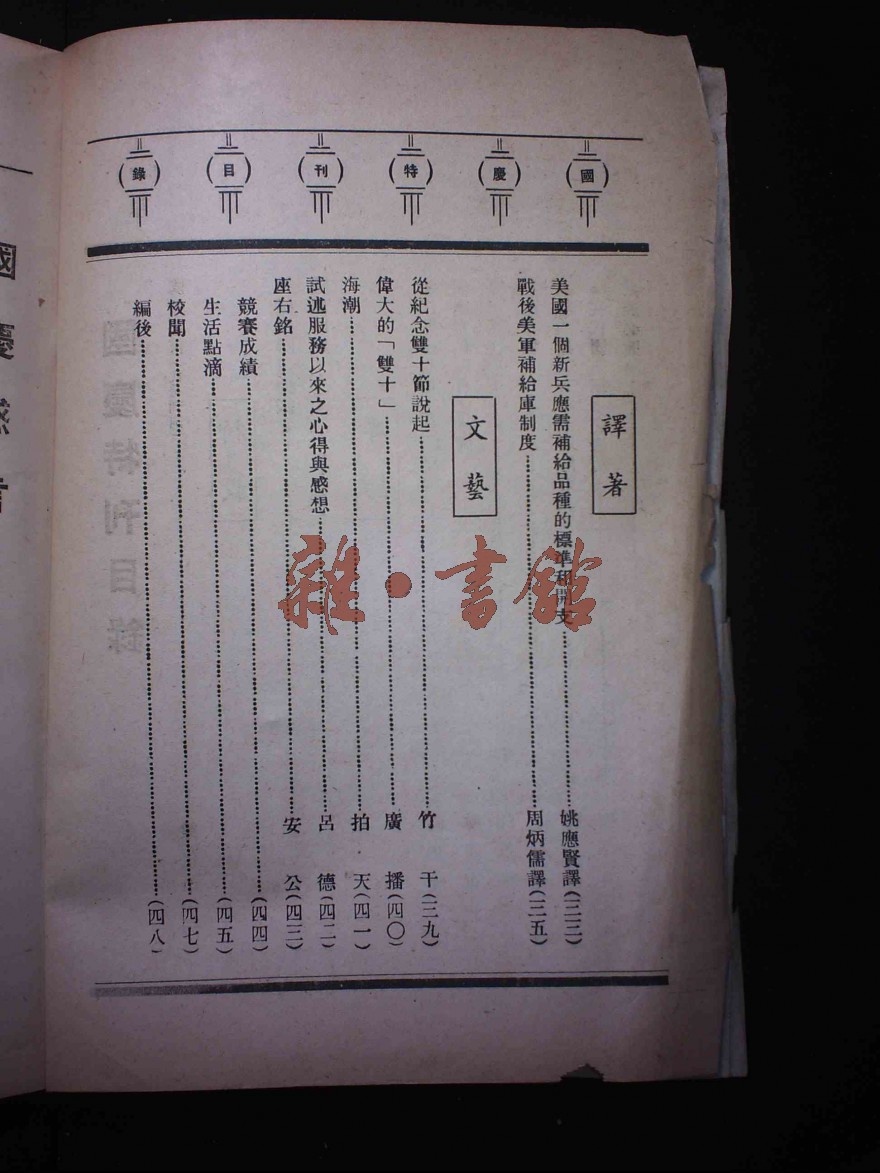 國慶特刊目錄
譯著
美國一個新兵應需補給品種的標準和開支…………姚應賢譯(三三)
戰後美軍補給庫制度…………周炳儒譯(三五)
文藝
從紀念雙十節說起…………竹 干(三九)
偉大的「雙十」…………廣 播(四〇)
海潮…………拍 天(四一)
試述服務以來之心得與感想…………呂 德(四二)
座右銘…………安 公(四三)
競賽成績…………(四四)
生活點滴…………(四五)
校聞…………(四七)
編後…………(四八)
雜·書館
國慶感言